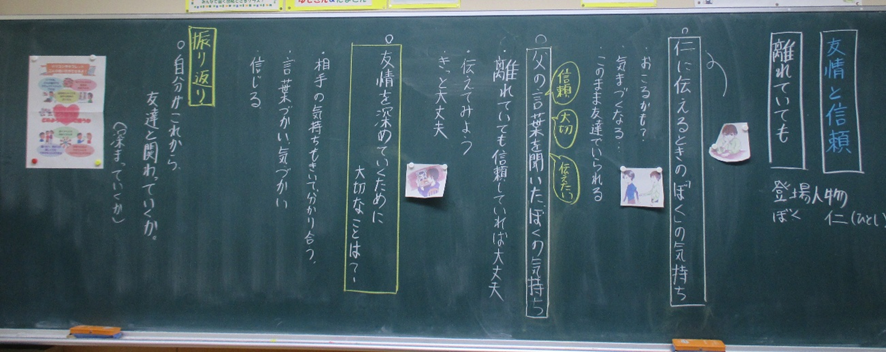 友情と信頼
離れていても
登場人物
ぼく 仁(ひとし)
仁に伝えるときの「ぼく」の気持ち
・おこるかも?
・気まづくなる…
・このまま友達でいられる
信頼
大切
伝えたい
父の言葉を聞いた、ぼくの気持ち
・離れていても信頼していれば大丈夫
・伝えてみよう
・きっと大丈夫
友情を深めていくために
大切なことは?
・相手の気持ちもきいて、分かり合う。
・言葉づかい、気づかい
・信じる
振り返り
○自分がこれから、
友達と関わっていくか。
(深まっていくか)